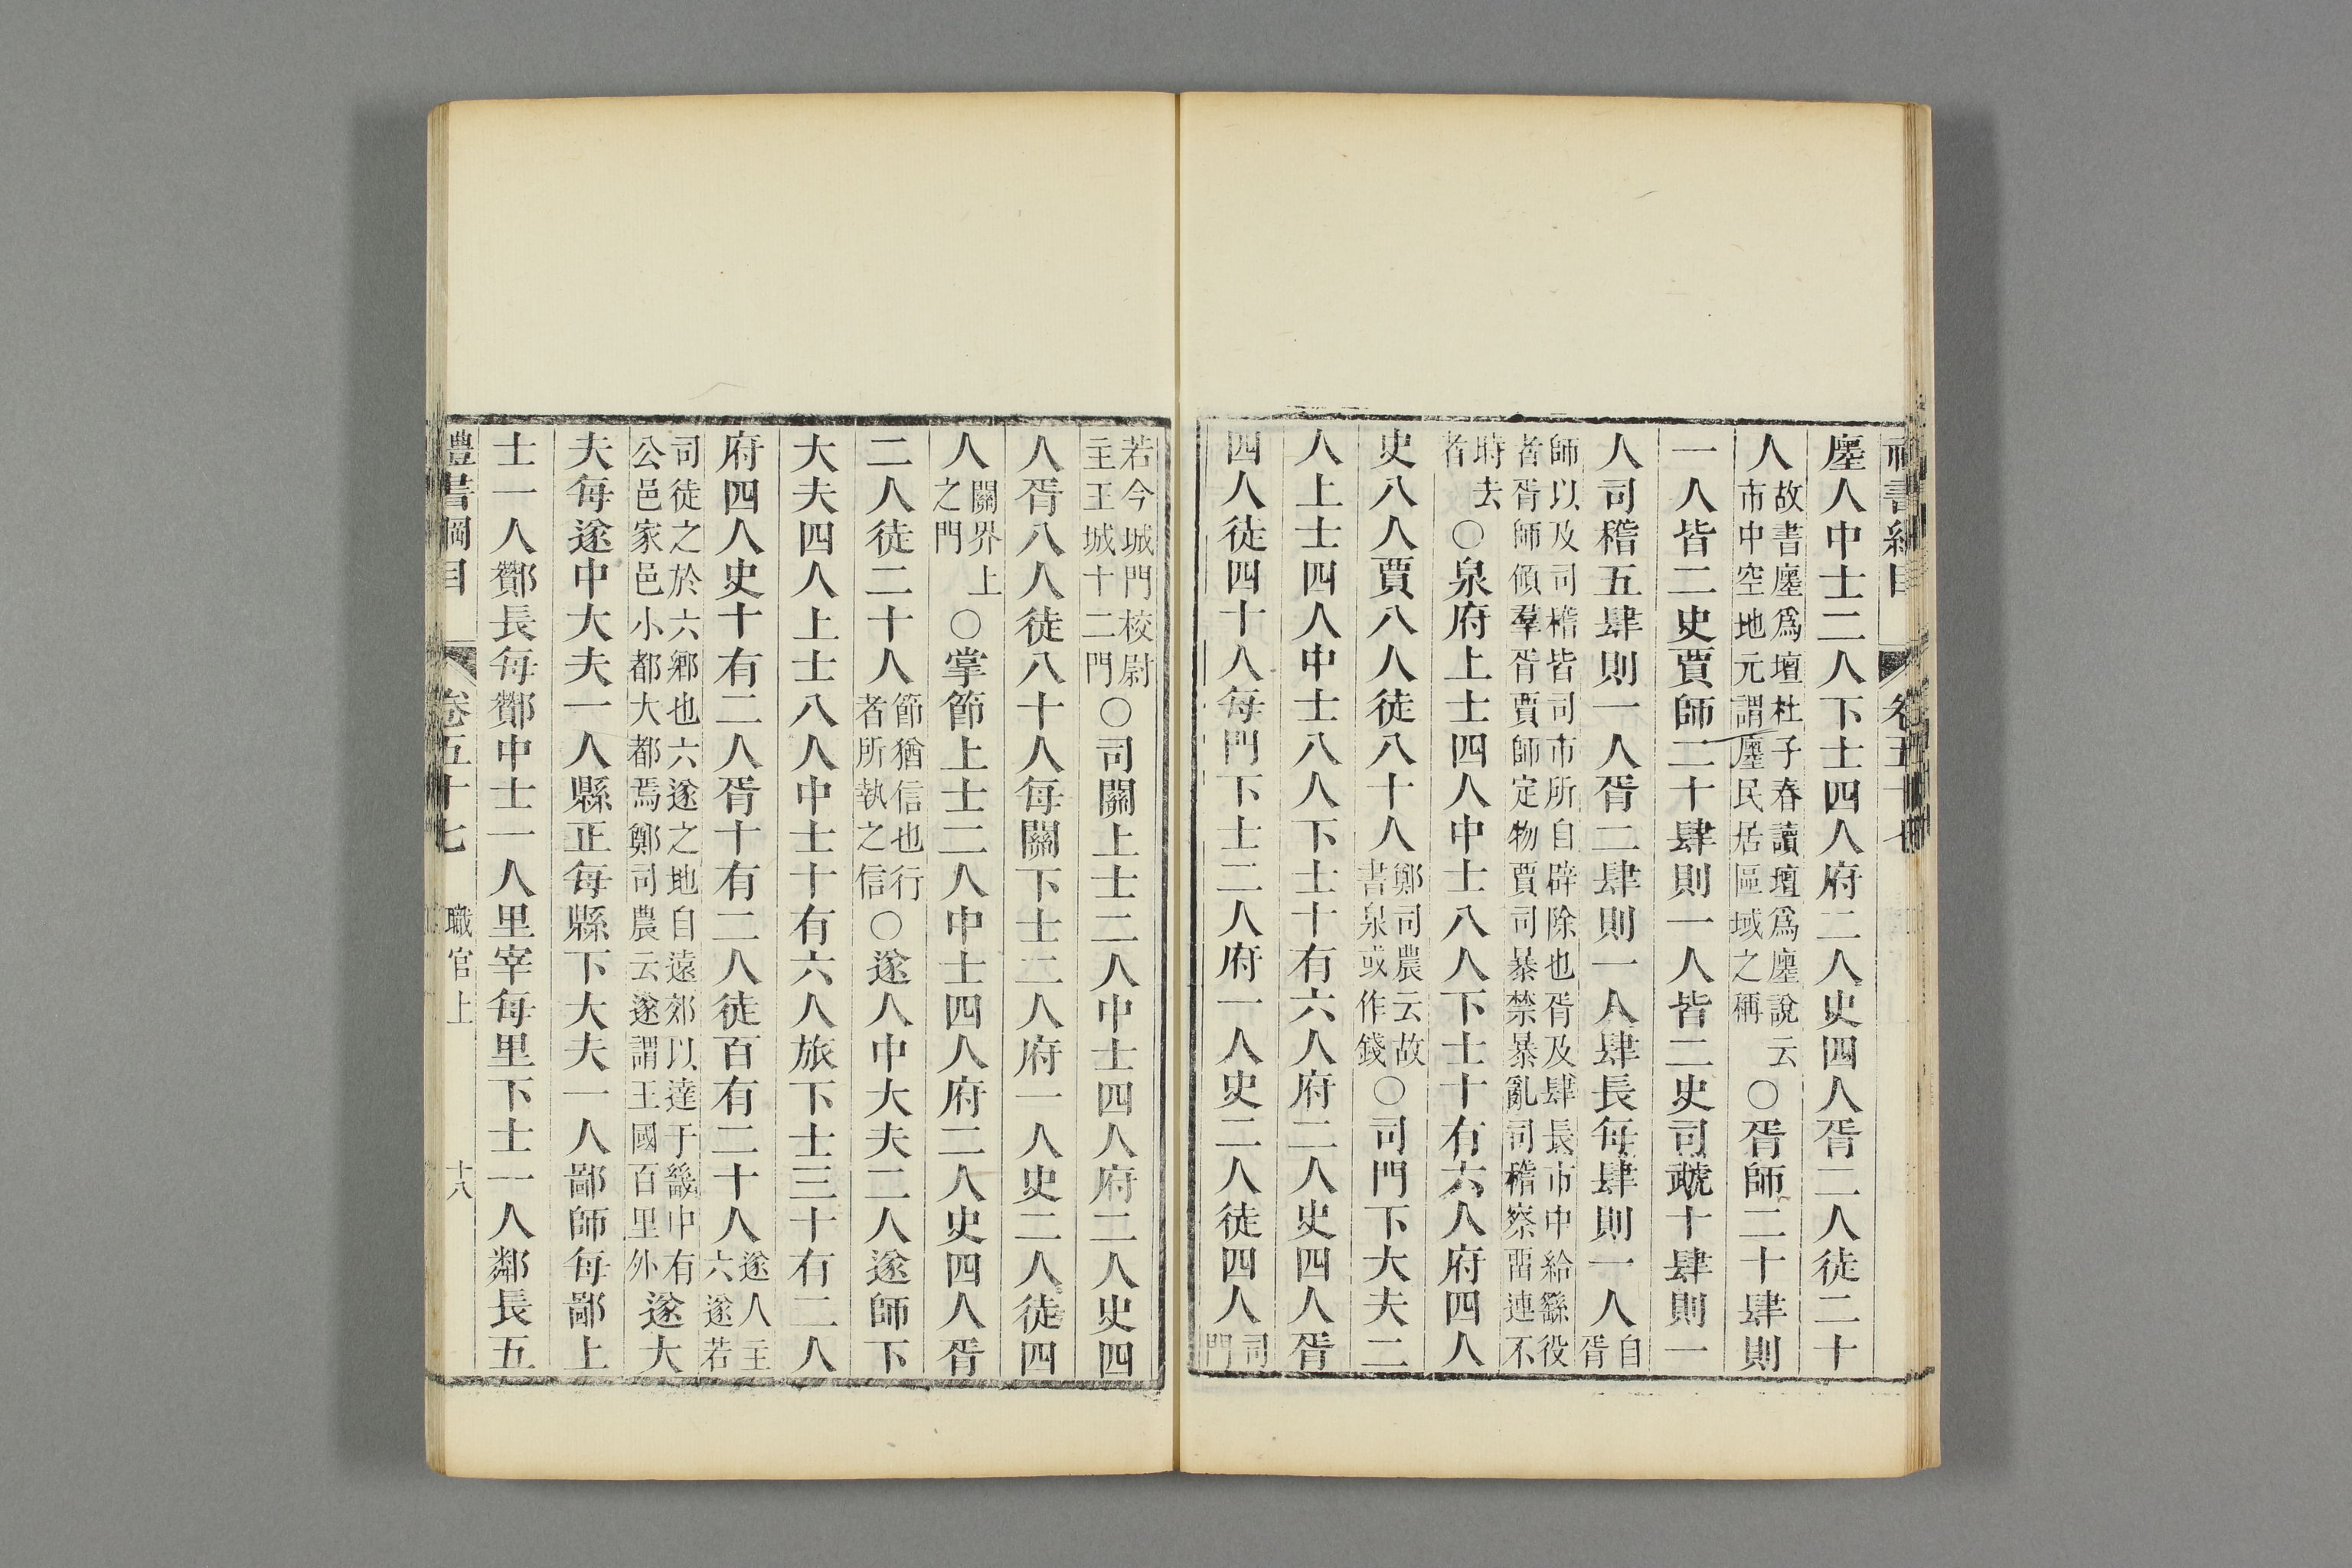 禮書綱目 卷五十七
廛人中士二人下士四人府二人史四人胥二人徒二十
人
故書廛爲壇杜子春讀壇爲廛說云
市中空地元謂廛民居區域之稱
○胥師二十肆則
一人皆二史賈師二十肆則一人皆二史司虣十肆則一
人司稽五肆則一人胥二肆則一人肆長每肆則一人
自
胥
師以及司稽皆司市所自辟除也胥及肆長市中給繇役
者胥師領羣胥賈師定物賈司暴禁暴亂司稽察畱連不
時去
者
○泉府上士四人中士八人下士十有六人府四人
史八人賈八人徒八十人
鄭司農云故
書泉或作錢
○司門下大夫二
人上士四人中士八人下士十有六人府二人史四人胥
四人徒四十人每門下士二人府一人史二人徒四人
司
門
若今城門校尉
主王城十二門
○司關上士二人中士四人府二人史四
人胥八人徒八十人每關下士二人府一人史二人徒四
人
關界上
之門
○掌節上士二人中士四人府二人史四人胥
二人徒二十人
節猶信也行
者所執之信
○遂人中大夫二人遂師下
大夫四人上士八人中士十有六人旅下士三十有二人
府四人史十有二人胥十有二人徒百有二十人
遂人主
六遂若
司徒之於六鄉也六遂之地自遠郊以達于畿中有
公邑家邑小都大都焉鄭司農云遂謂王國百里外
遂大
夫每遂中大夫一人縣正每縣下大夫一人鄙師每鄙上
士一人酇長每酇中士一人里宰每里下士一人鄰長五
禮書綱目 卷五十七 職官上 十八